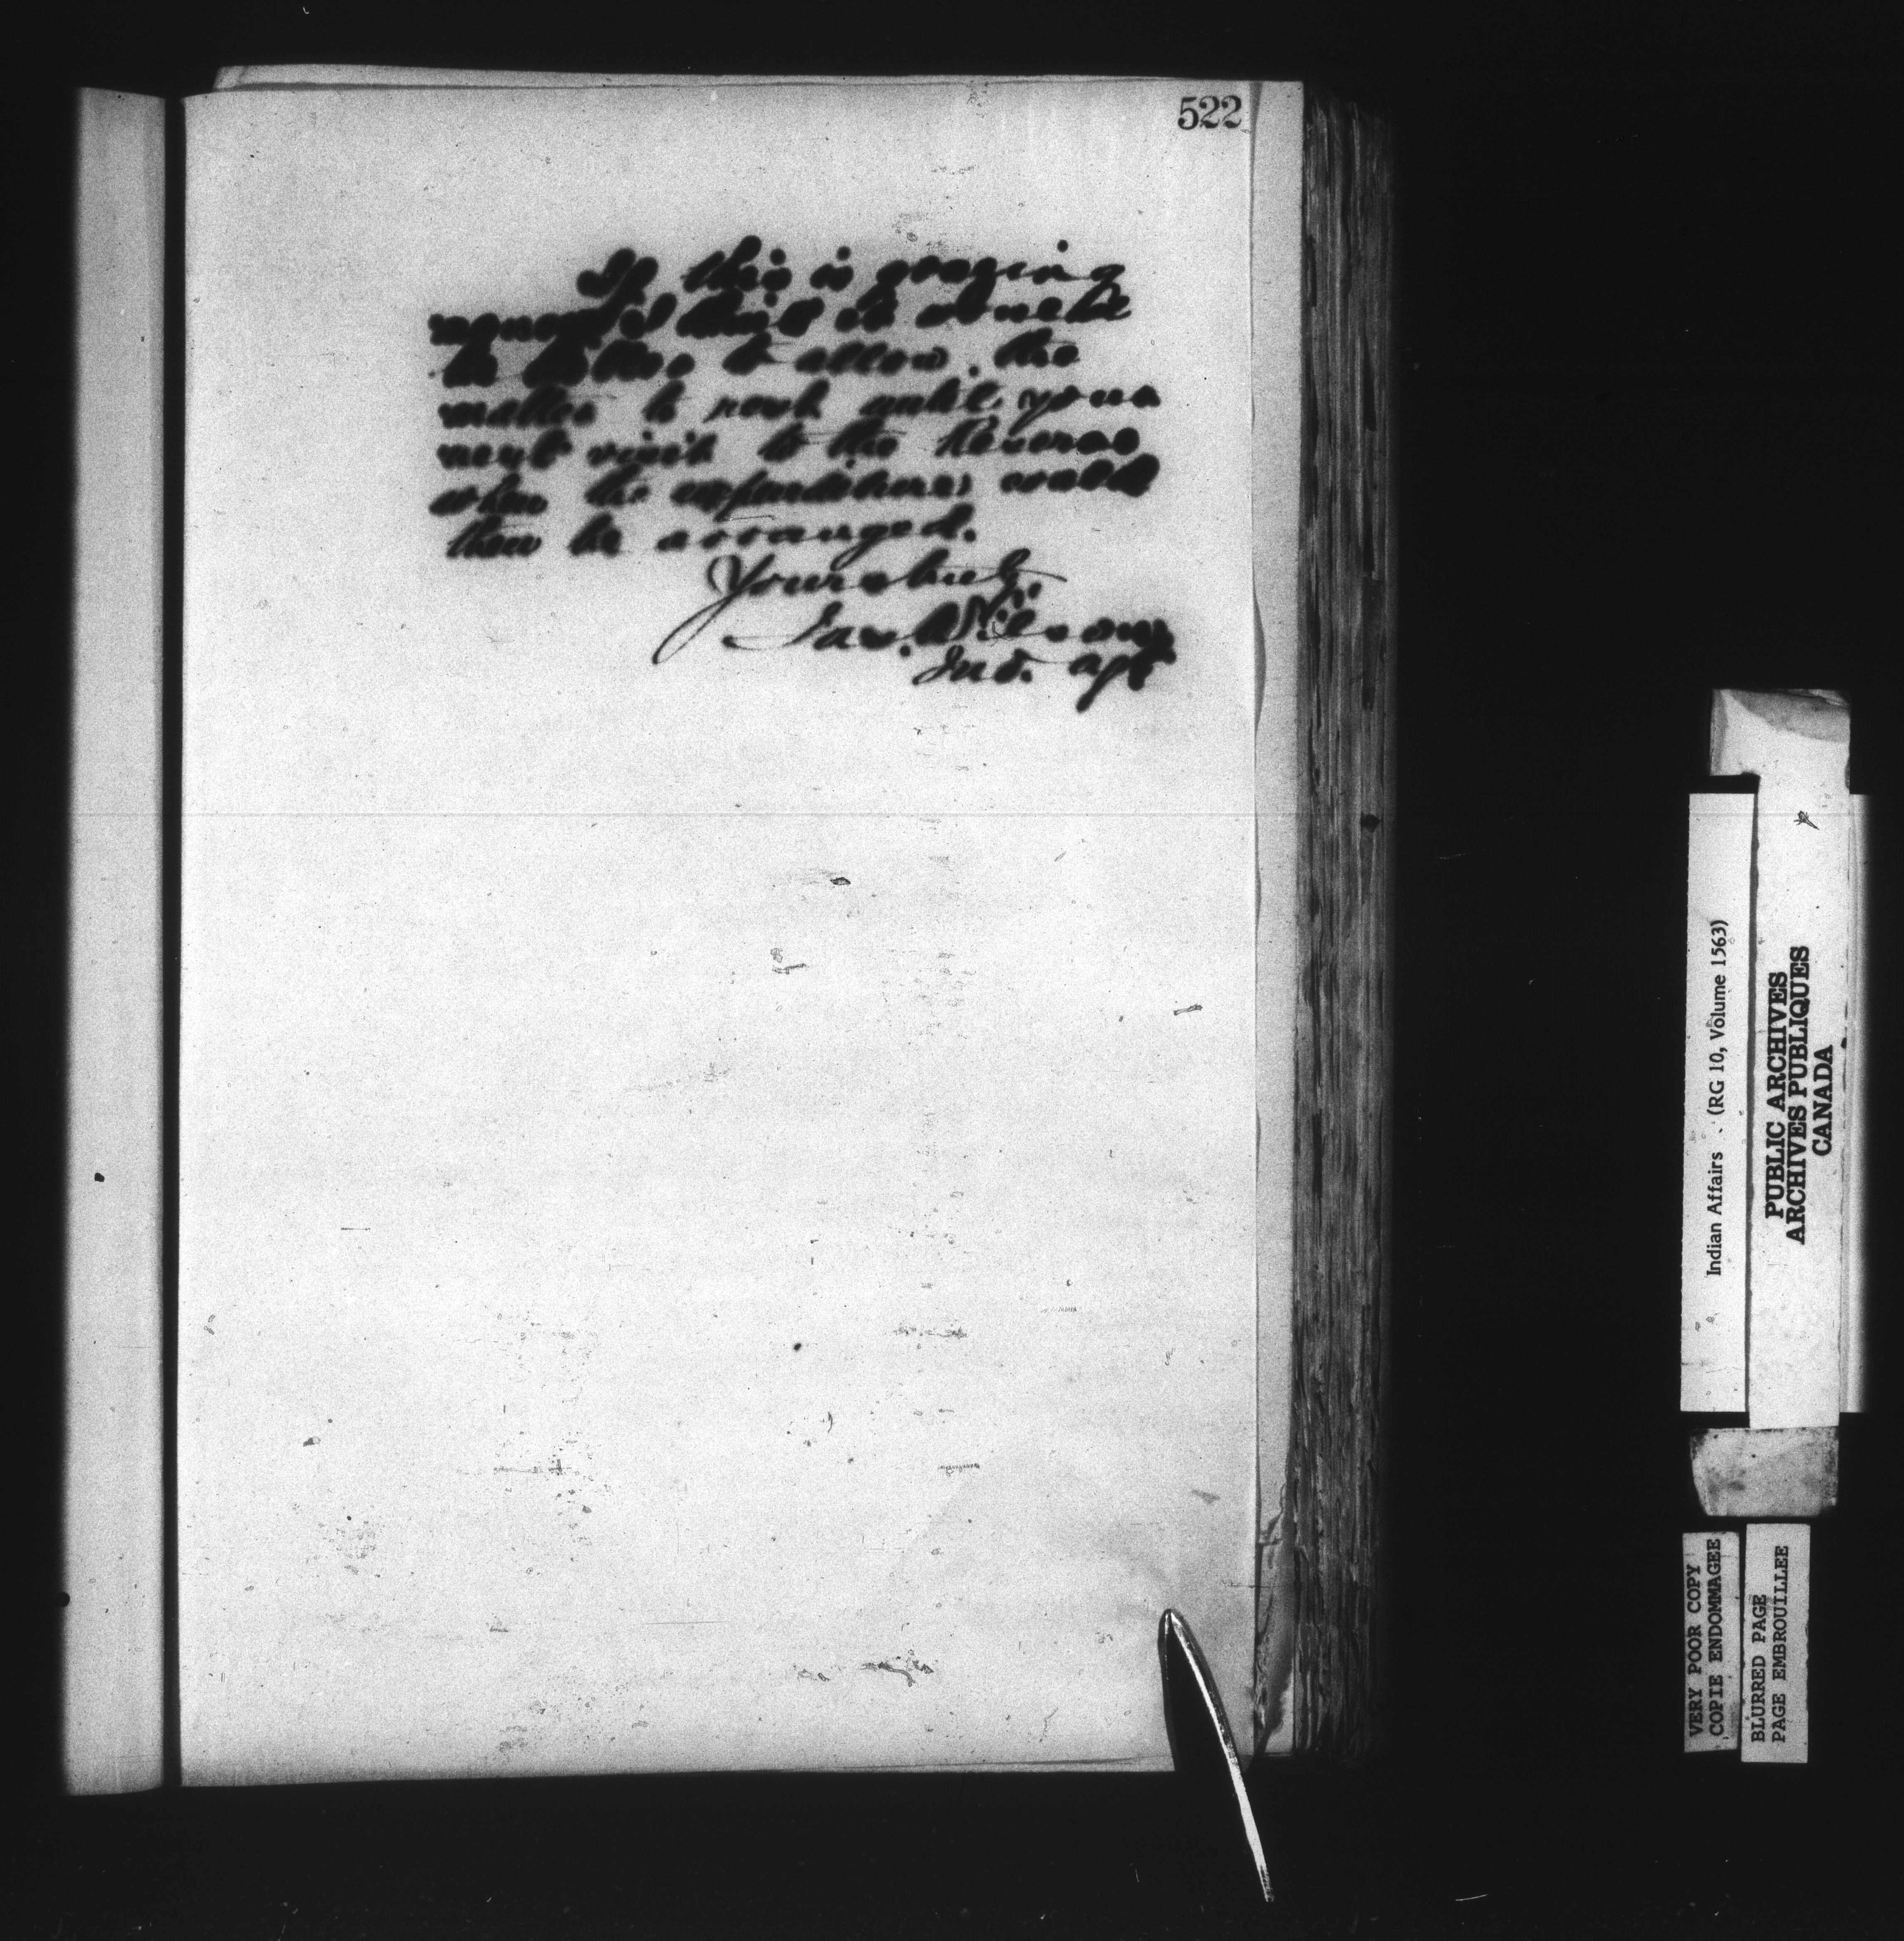 522
If this is grazing
money I think it would
be better to allow the
matter to rest until your
next visit to the Reserve
when the expenditures could
then be arranged.
Yours truly
Jas. Wilson
Ind. Agt
Indian Affairs (RG 10, Volume 1563)
PUBLIC ARCHIVES
ARCHIVES PUBLIQUES
CANADA
VERY POOR COPY
COPIE ENDOMMAGEE
BLURRED PAGE
PAGE EMBROUILLEE